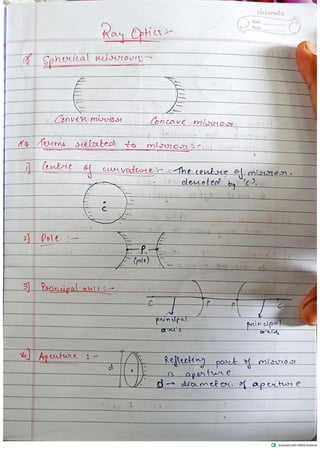 classmate
Date
Page
Ray Optics :-
Spherical mirrors :-
Conven mirror Concave mirror
Terms related to mirrors :-
1] Centre of curvature :- The centre of mirror.
denoted by 'C'.
C
2] Pole :-
P
(pole)
3] Principal axis :-
C P P C
principal principal
axis axis
4] Aperture :-
d
Reflecting part of mirror
is aperture.
d → diameter of aperture